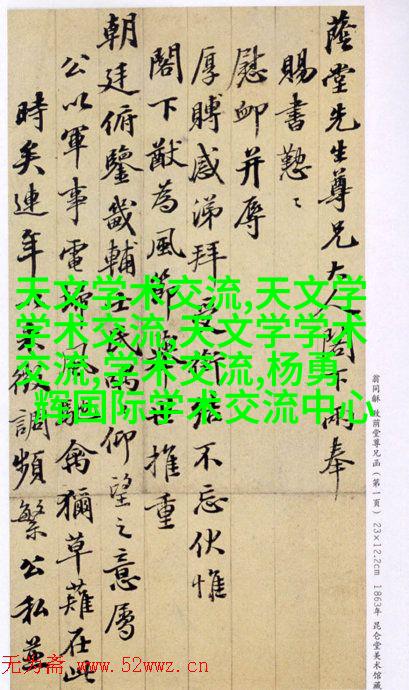 蔭堂先生尊兄大人閣下兩奉
賜書懃〻
慰卹并辱
厚賻感涕拜受銜結不忘伏惟
閣下猷為風節舉世推重
朝廷俯鑒畿輔士民仰望之意屬
公以軍事電埽風馳禽獮草薙在此
時矣連年東徵調頻繁公私並
天文学术交流,天文学
学术交流,天文学学术
交流,学术交流,杨勇
辉国际学术交流中心
翁同龢 致荫堂尊兄函(第一頁) 23×12.2cm 1863年 昆仑堂美术馆藏
无为斋 www.52wwz.cn